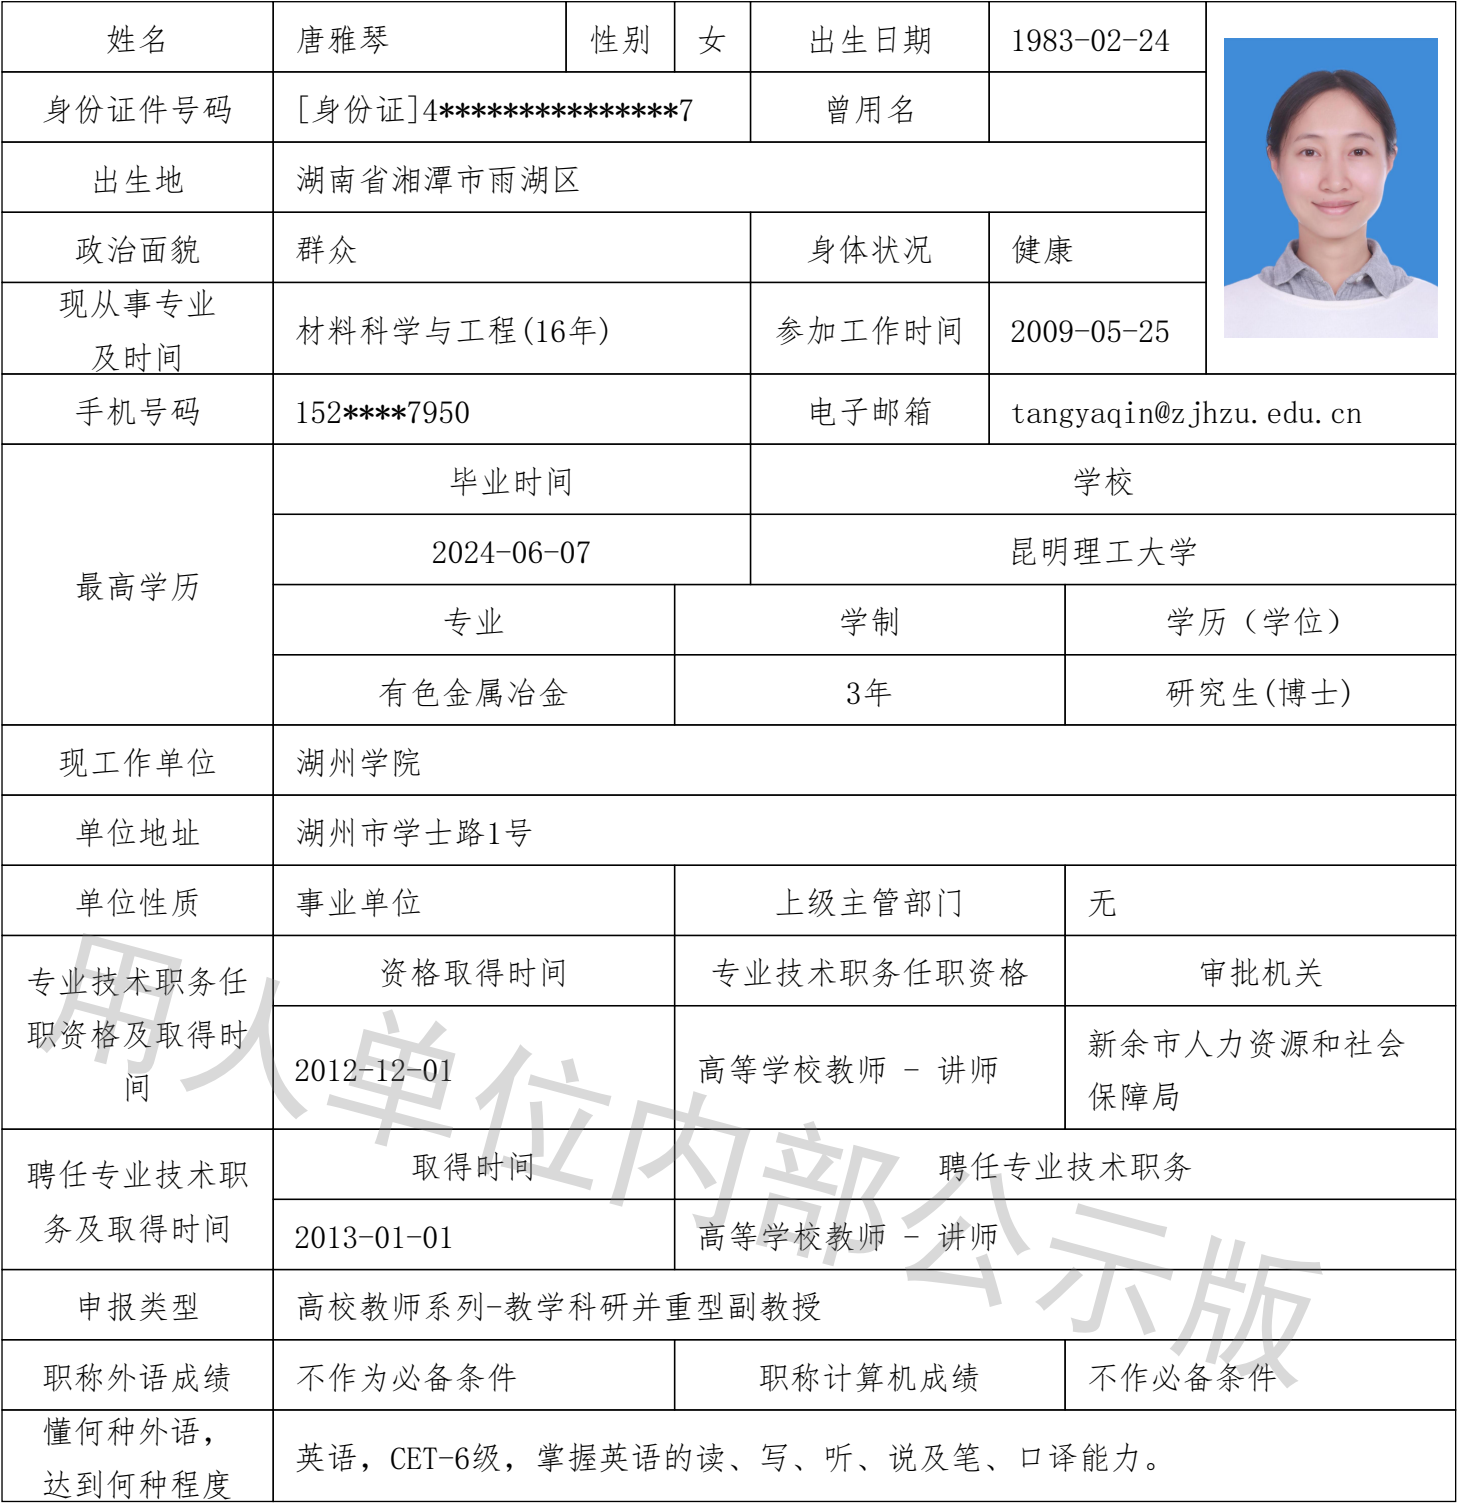 姓名 唐雅琴 性别 女 出生日期 1983-02-24
身份证件号码 [身份证]4***************7 曾用名
出生地 湖南省湘潭市雨湖区
政治面貌 群众 身体状况 健康
现从事专业
及时间
材料科学与工程(16年) 参加工作时间 2009-05-25
手机号码 152****7950 电子邮箱 tangyaqin@zjhzu.edu.cn
最高学历
毕业时间 学校
2024-06-07 昆明理工大学
专业 学制 学历（学位）
有色金属冶金 3年 研究生(博士)
现工作单位 湖州学院
单位地址 湖州市学士路1号
单位性质 事业单位 上级主管部门 无
专业技术职务任
职资格及取得时
间
资格取得时间 专业技术职务任职资格 审批机关
2012-12-01 高等学校教师 - 讲师 新余市人力资源和社会
保障局
聘任专业技术职
务及取得时间
取得时间 聘任专业技术职务
2013-01-01 高等学校教师 - 讲师
申报类型 高校教师系列-教学科研并重型副教授
职称外语成绩 不作为必备条件 职称计算机成绩 不作必备条件
懂何种外语，
达到何种程度
英语，CET-6级，掌握英语的读、写、听、说及笔、口译能力。
用人单位内部公示版